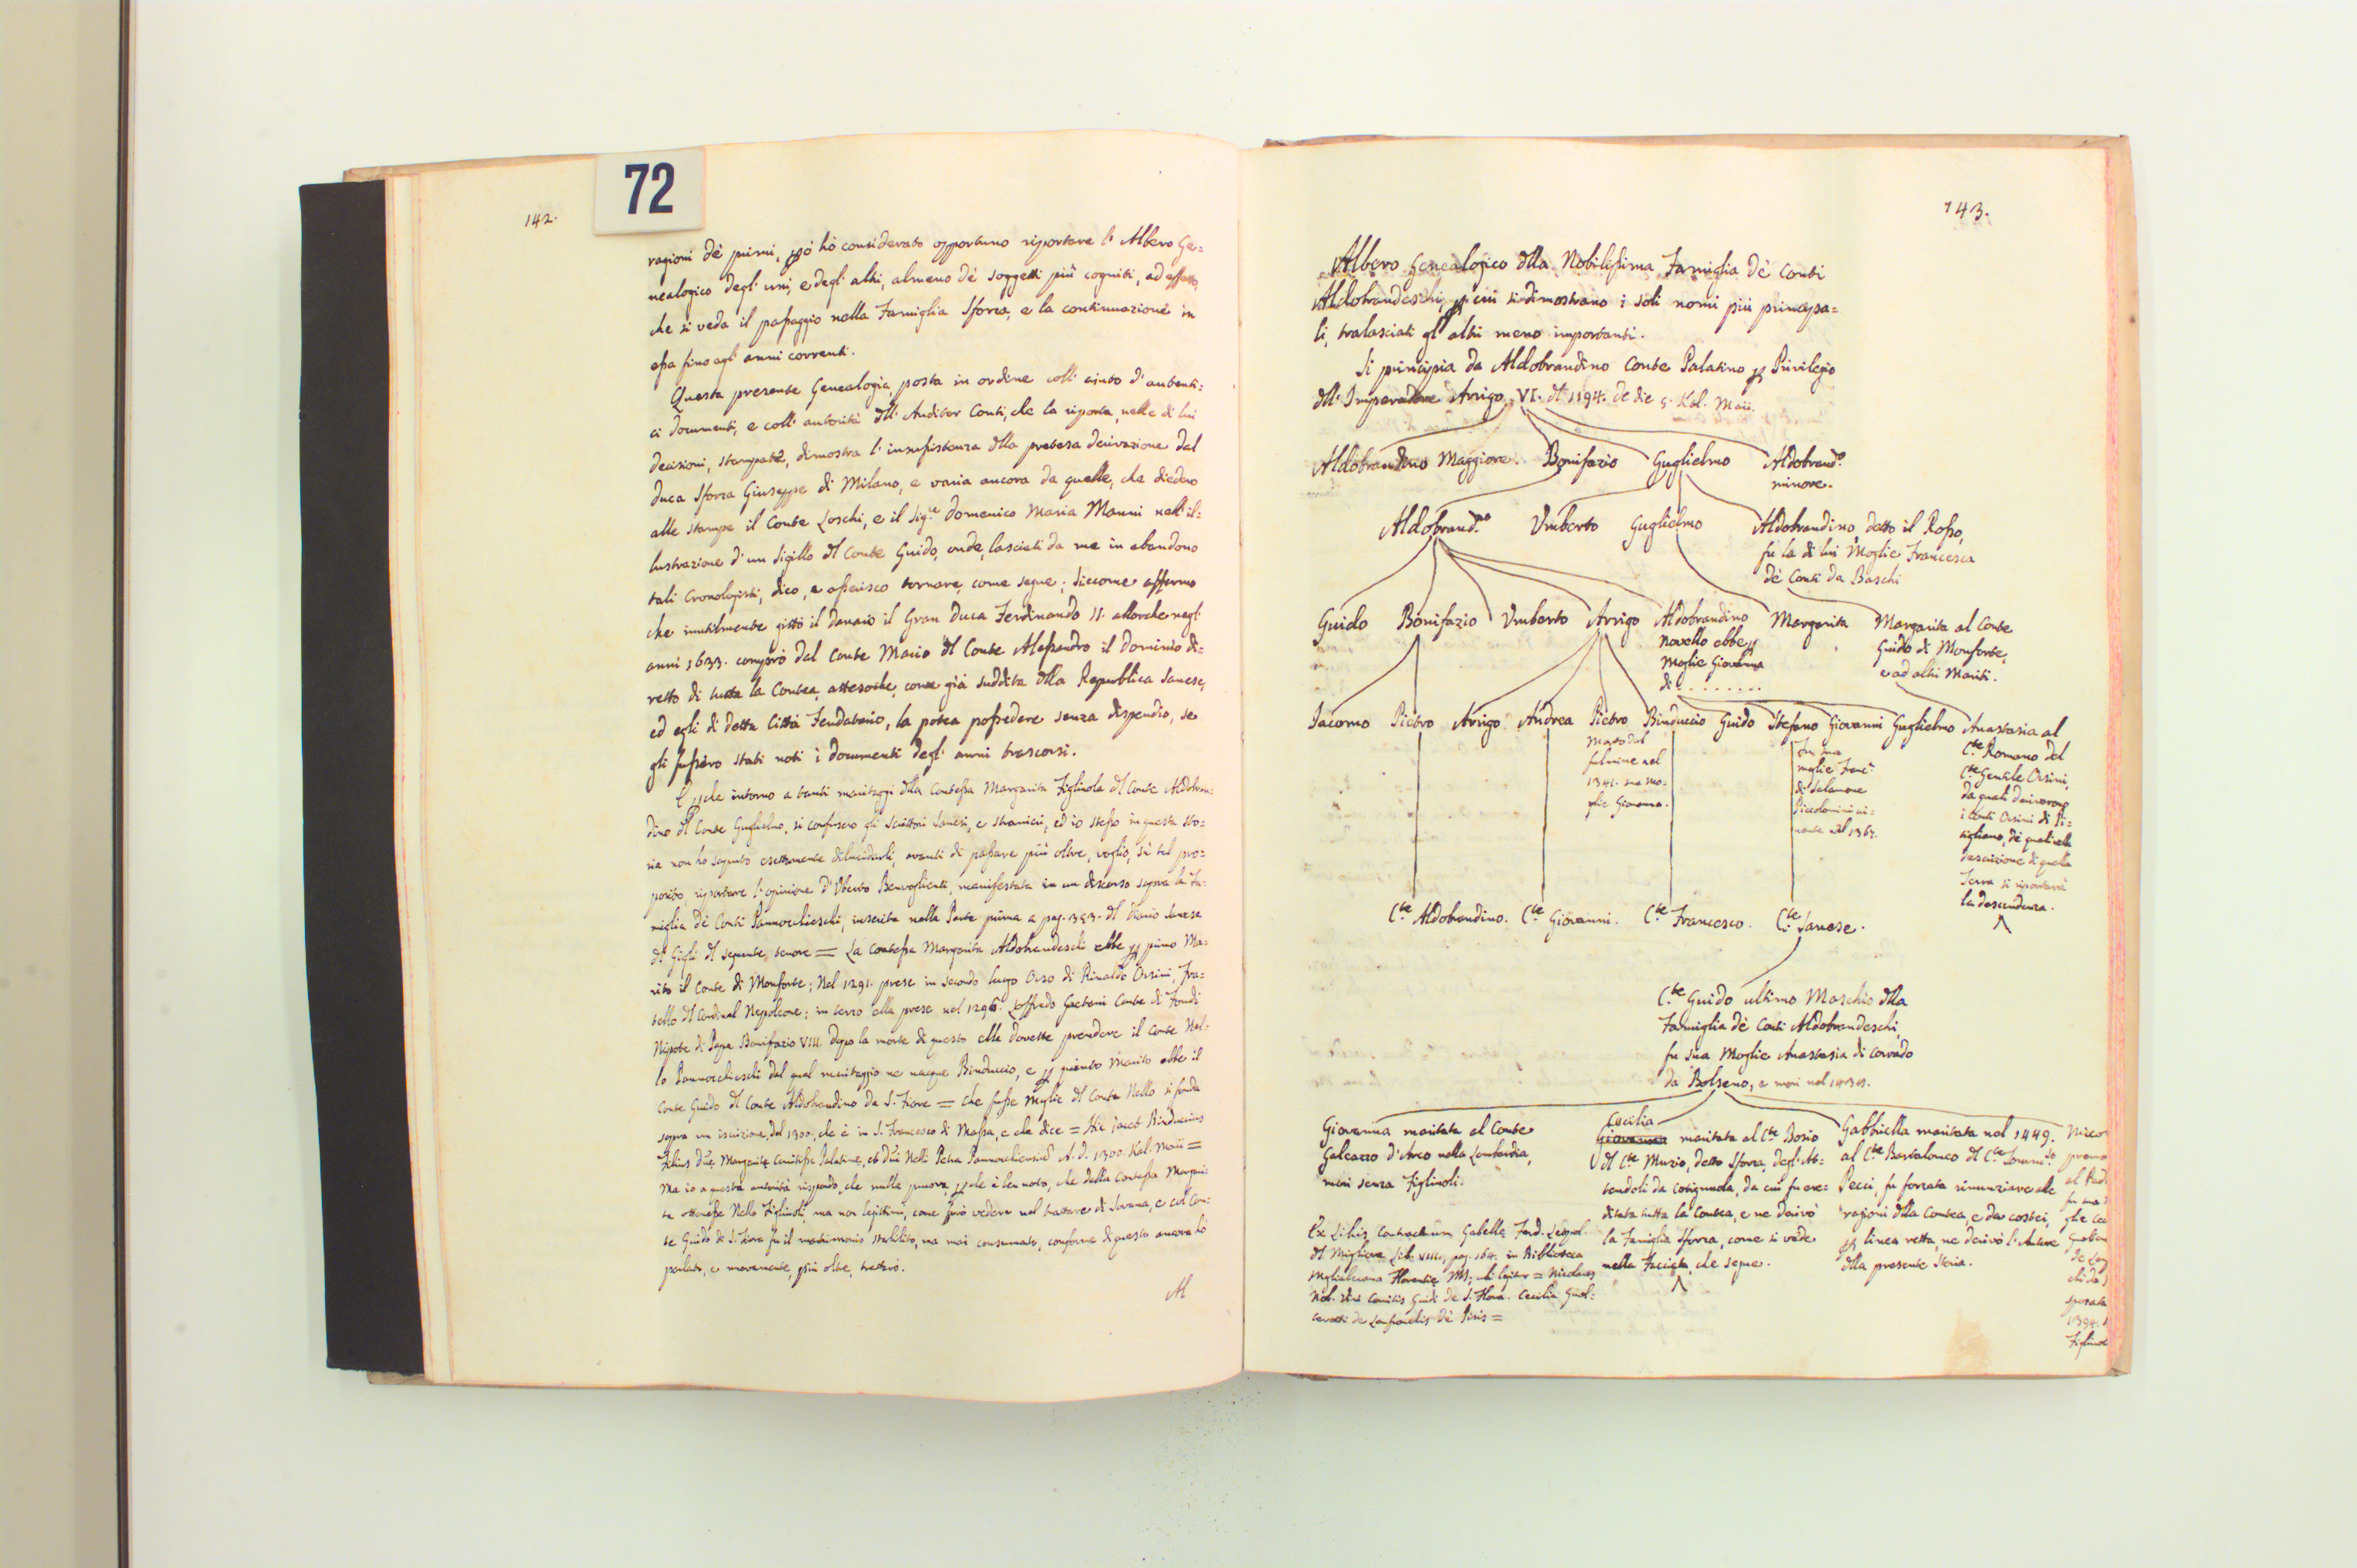 72
142.
ragioni dè primi, però hò considerato opportuno riportare l'Albero Ge=
nealogico degl'uni, e degl'altri, almeno dè soggetti più cogniti, ad effetto,
che si veda il passaggio nella Famiglia Sforza, e la continuazione in
essa fino agl'anni correnti.
Questa presente Genealogia, posta in ordine coll'aiuto d'autenti=
ci documenti, e coll'autorità dll'Auditor Conti, che la riporta, nelle di lui
decisioni, stampate, dimostra l'insussistenza dlla pretesa derivazione dal
Duca Sforza Giuseppe di Milano, e varia ancora da quelle, che diedero
alle stampe il Conte Loschi, e il Sig.re Domenico Maria Manni nell'il=
lustrazione d'un Sigillo dl Conte Guido, onde, lasciati da me in abandono
tali Cronologisti, dico, e asserisco tornare, come segue; siccome affermo
che inutilmente gittò il danaio il Gran Duca Ferdinando II. allorche negl'
anni 1633. comprò dal Conte Mario dl Conte Alessandro il dominio di=
retto di tutta la Contea, attesoche, come già suddita dlla Republica Sanese,
ed egli di detta Città Feudatario, la potea possedere senza dispendio, se
gli fussero stati noti i documenti degl'anni trascorsi.
E perche intorno a tanti maritaggi dlla Contessa Margarita Figliuola dl Conte Aldobran=
dino dl Conte Guglielmo, si confusero gli Scrittori Sanesi, e stranieri, ed io stesso in questa Sto=
ria non hò saputo esattamente dilucidarli, avanti di passare più oltre, voglio, sù tal pro=
posito, riportare l'opinione d'Uberto Benvoglienti, manifestata in un discorso sopra la Fa=
miglia dè Conti Pannocchieschi, inserita nella Parte prima a pag. 353. dl Diario Sanese
di Gigli dl seguente tenore = La Contessa Margarita Aldobrandeschi ebbe per primo Ma=
rito il Conte di Monforte; Nel 1291. prese in secondo luogo Orso di Rinaldo Orsini, Fra=
tello dl Cardinal Nepoleone; in terzo ella prese nel 1296. Loffredo Gaetani Conte di Fondi
Nipote di Papa Bonifazio VIII. dopo la morte di questo elle dovette prendere il Conte Nel=
lo Pannocchieschi dal qual maritaggio ne nacque Binduccio, e per quinto Marito ebbe il
Conte Guido dl Conte Aldobrandino da S. Fiore = Che fusse moglie dl Conte Nello si fonda
sopra un iscrizione, del 1300., che è in S. Francesco di Massa, e che dice = Hic jacet Binduccius
Filius Dne Margarite Comitisse Palatine, et Dni Nelli Petra Pannocchiensis A. D. 1300. Kal. Maii =
Ma io a questa autorità rispondo, che nulla pruova, perche è ben noto, che dalla Contessa Margari=
ta ottenesse Nello Figliuoli, ma non legittimi, come può vedere nel trattare di Sovana, e col Con=
te Guido di S. Fiora fu il matrimonio stabilito, ma mai consumato, conforme di questo ancora hò
parlato, e novamente, più oltre, tratterò.
Al
143.
Albero Genealogico dlla Nobilissima Famiglia dè Conti
Aldobrandeschi, per cui si dimostrano i soli nomi più principa=
li, tralasciati gl'altri meno importanti.
Si principia da Aldobrandino Conte Palatino per Privilegio
dll'Imperadore Arrigo VI. dl 1194. de die 5. Kal. Maii.
Aldobrandino Maggiore. Bonifazio Guglielmo Aldobrand.o
minore.
Aldobrand.no Umberto Guglielmo Aldobrandino, detto il Rosso,
fu la di lui Moglie Francesca
dè Conti da Baschi
Guido Bonifazio Umberto Arrigo Aldobrandino Margarita Margarita al Conte
Novello ebbe per Guido di Monforte,
Moglie Giovanna e ad altri Mariti.
di ........
Jacomo Pietro Arrigo Andrea Pietro Binduccio Guido Stefano Giovanni Guglielmo Anastasia al
Morto dal
fulmine nel
1341. sua mo=
glie Giovanna.
fu sua
moglie Franc.a
di Salamone
Piccolomini vi=
vente nel 1367.
C.te Romano del
C.te Gentile Orsini,
da quali derivorono
i Conti Orsini di Pi=
tigliano, de quali nella
descrizione di quella
Terra si riportarà
la descendenza.
C.te Aldobrandino. C.te Giovanni. C.te Francesco. C.te Sanese.
C.te Guido ultimo Maschio dlla
Famiglia dè Conti Aldobrandeschi,
fu sua Moglie Anastasia di Corrado
da Bolseno, e morì nel
Giovanna maritata al Conte
Galeazzo d'Arco nella Lombardia,
morì senza Figliuoli.
Cecilia
Giovanna maritata al C.te Bosio
dl C.te Muzio, detto Sforza, degl'At=
tendoli da Cotignuola, da cui fu ere=
ditata tutta la Contea, e ne derivò
la Famiglia Sforza, come si vede
nella Facciata, che segue.
Gabbriella maritata nel 1449.
al C.te Bartolomeo dl C.te
Pecci, fu forzata rinunziare alle
ragioni dlla Contea, e da costei,
per linea retta, ne derivò l'Autore
dlla presente Storia.
Ex Libris Contractuum Gabelle Ferd. Leopol.
dl Migliore Lib. VIII. pag. 164. in Biblioteca
Magliabecana Florentie MS; ubi legitur = Nicolaus
Nob. Viri Comitis Guidi de S. Flora. Cecilia
de Lanfranchis de Pisis =
sposata
1394.